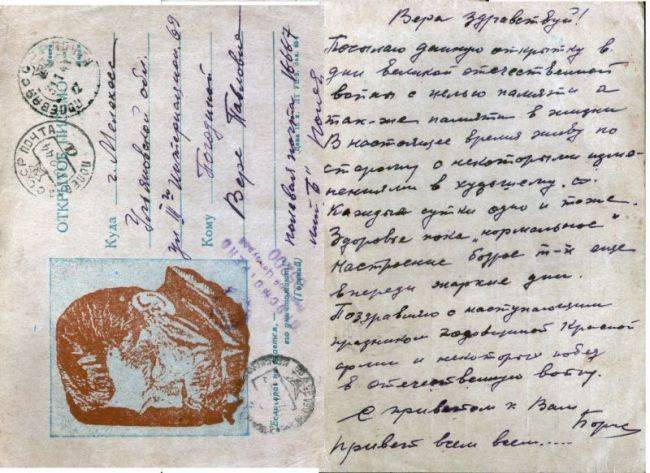 ОТКРЫТОЕ ПИСЬМО
Куда
г. Мелекес
Ульяновской обл.
ул. III го Интернационала 69
Кому
Погодиной
Вере Павловне
полевая почта 16667
СССР ПОЧТА
Вера здравствуй!
Посылаю данную открытку в
дни великой отечественной
войны с целью памяти а
так-же памяти в жизни
В настоящее время живу по
старому с некоторыми изме-
нениями в худшему.
Каждые сутки одно и тоже.
Здоровье пока "нормальное"
Настроение бодрое т-к еще
впереди жаркие дни.
Поздравляю с наступающим
праздником годовщиной Красной
армии и некоторых побед
в отечественную войну.
С приветом к Вам
Борис
Привет всем всем.....